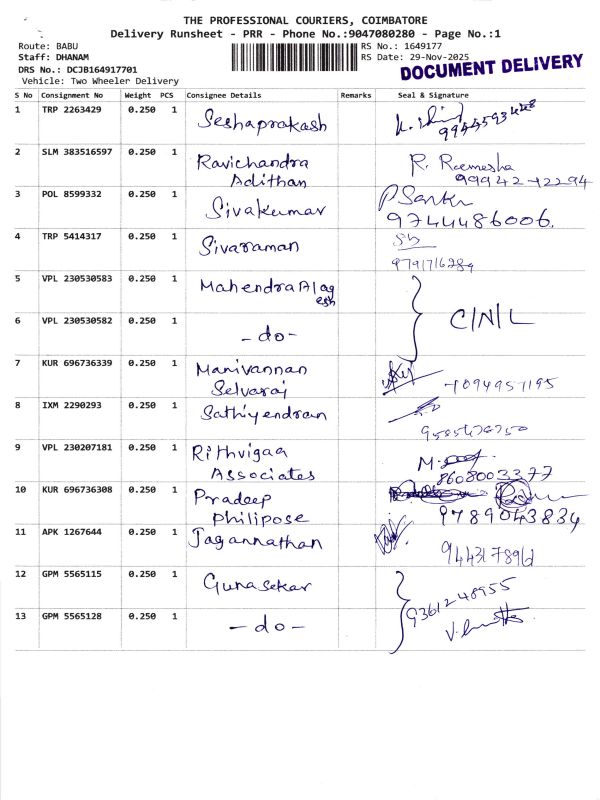 THE PROFESSIONAL COURIERS, COIMBATORE
Delivery Runsheet - PRR - Phone No.:9047080280 - Page No.:1
Route: BABU RS No.: 1649177
Staff: DHANAM RS Date: 29-Nov-2025
DRS No.: DCJB164917701
Vehicle: Two Wheeler Delivery
DOCUMENT DELIVERY
S No Consignment No Weight PCS Consignee Details Remarks Seal & Signature
1 TRP 2263429 0.250 1 Seshaprakash
2 SLM 383516597 0.250 1 Ravichandra R. Rameesha
Adithan 99942 42294
3 POL 8599332 0.250 1 Sivakumar P Sankr
9744486006.
4 TRP 5414317 0.250 1 Sivaraman
9791716289
5 VPL 230530583 0.250 1 Mahendra Alag
esh
6 VPL 230530582 0.250 1 -do- C/N/L
7 KUR 696736339 0.250 1 Manivannan
Selvaraj
8 IXM 2290293 0.250 1 Sathiyendran
9 VPL 230207181 0.250 1 Rithvigaa
Associates 8608003377
10 KUR 696736308 0.250 1 Pradeep
Philipose 9789043834
11 APK 1267644 0.250 1 Jagannathan
12 GPM 5565115 0.250 1 Gunasekar 9361248955
13 GPM 5565128 0.250 1 -do-